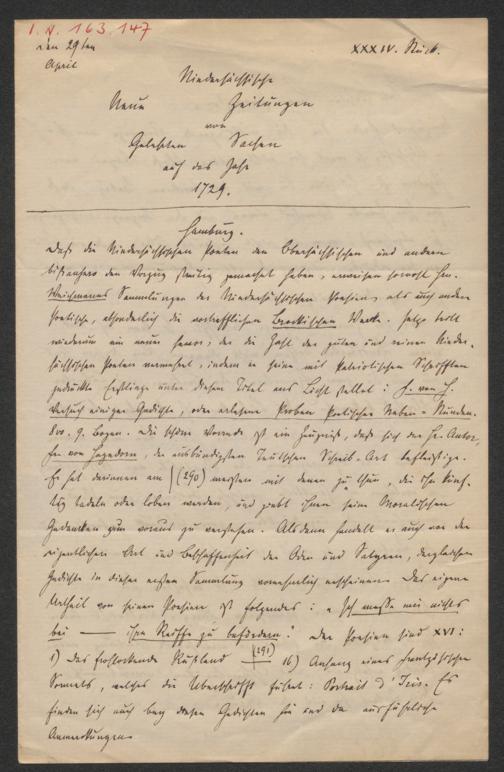 I. N. 163.147
den 29ten
April
XXXIV. Stück.
Niedersächsische
Neue Zeitungen
von
Gelehrten Sachen
auf das Jahr
1729.
Hamburg.
Daß die Niedersächsischen Poeten den Obersächsischen und andern
bißanhero den Vorzug streitig gemachet haben, erweisen sowohl Hn.
Weichmanns Sammlungen der Niedersächsischen Poesien, als auch andere
Poetische absonderlich die vortrefflichen Brockischen Werke. Jetzo tritt
wiederum ein neuer hervor, der die Zahl der guten und reinen Nieder-
sächsischen Poeten vermehret, indem er seine mit Patriotischen Schrifften
gedruckte Erstlinge unter diesem Titel ans Licht stellet: F. von H.
Versuch einiger Gedichte, oder erlesene Proben Poetischer Neben-Stunden.
8vo. 9. Bogen. Die schöne Vorrede ist ein Zeugniß, daß sich der Hr. Autor,
Hr. von Hagedorn, der ausbündigsten Teutschen Schreib-Art befleissige.
Er hat darinnen am (290) meisten mit denen zu thun, die ihn künf-
tig tadeln oder loben werden, und giebt ihnen seine Moralischen
Gedancken zum voraus zu verstehen. Alsdenn handelt er auch von der
eigentlichen Art und Beschaffenheit der Oden und Satyren, dergleichen
Gedichte in dieser ersten Sammlung vornehmlich erscheinen. Das eigene
Urtheil von seinen Poesien ist folgendes: „Ich messe mir nichts
bei —— ihre Reiffe zu befördern." Der Poesien sind XVI:
1) Das frohlockende Rußland —(291)— 16) Anfang eines frantzösischen
Sonnets, welches die Überschrifft führet: Portrait d'Iris. Es
finden sich auch bey diesen Gedichten hie und da ausführliche
Anmerkungen.